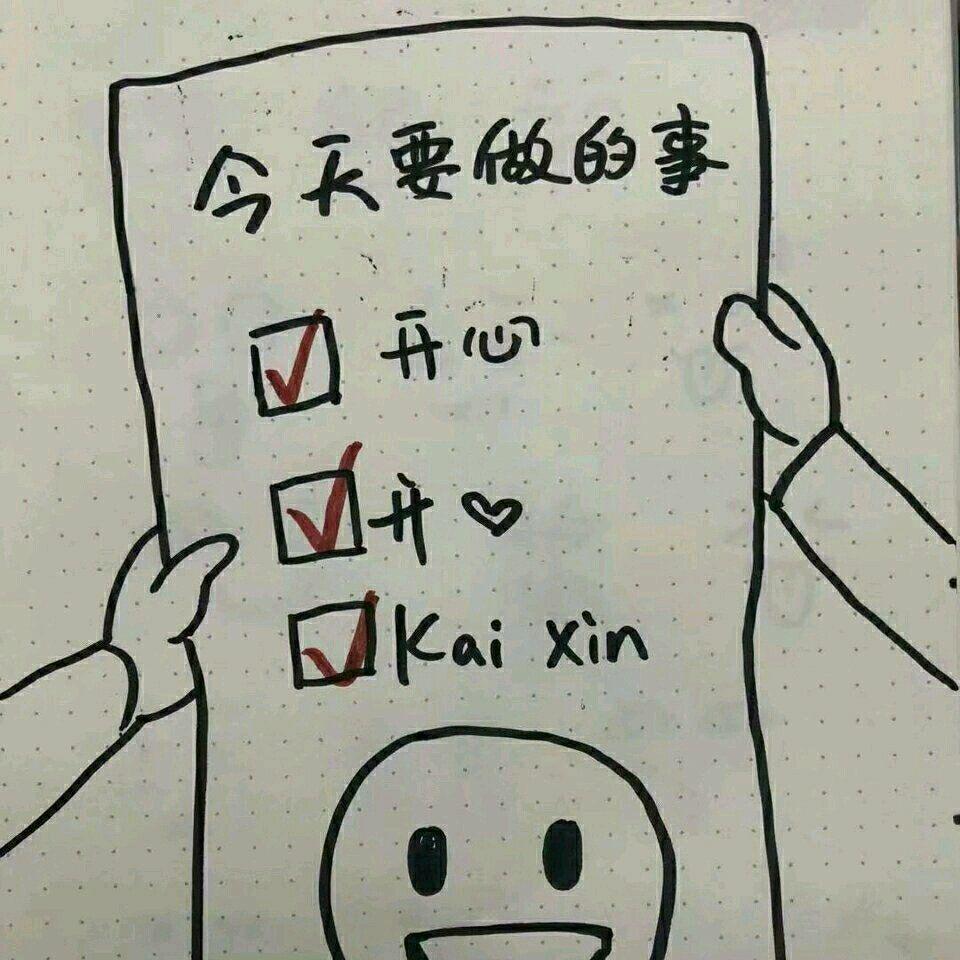 今天要做的事
开心
开♡
Kai Xin